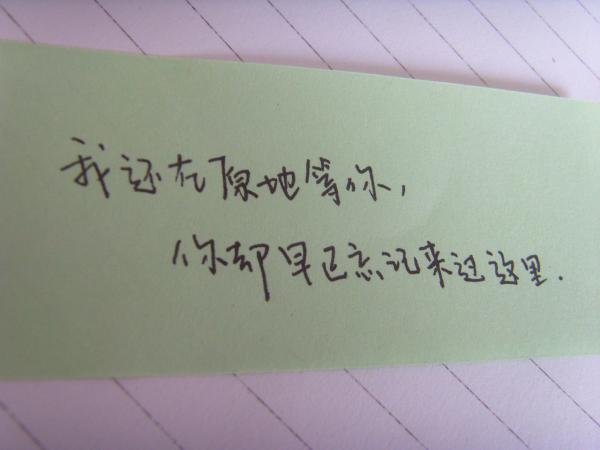 我还在原地等你,
你却早已忘记来过这里.